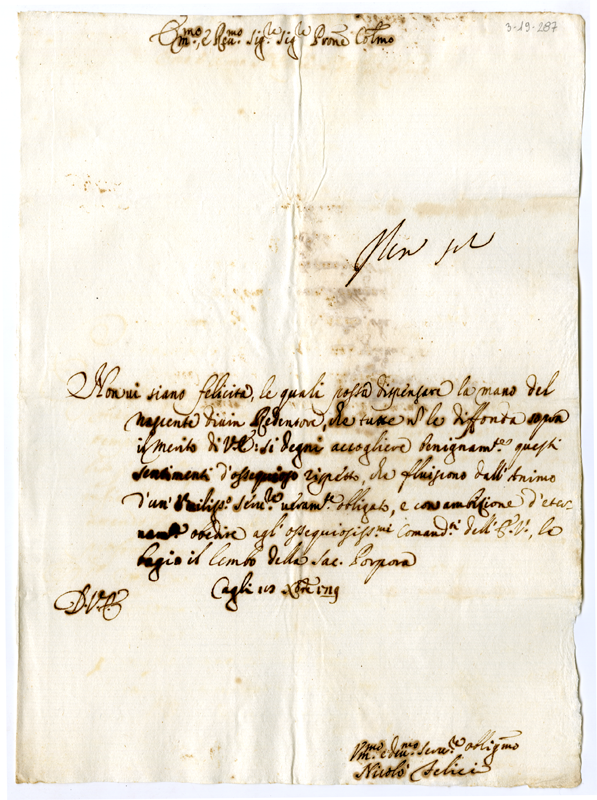 3-19-287
Em.mo, e Reu.mo Sig.re Sig.re Prone Col.mo
Non ui siano felicità, le quali possa dispensare la mano del
nascente diuin Redentore, che tutte n le diffonda sopra
il merito di V.E.: si degni accogliere benignam.te questi
sentimenti d'ossequioso rispetto, che fluiscono dall'Animo
d'un' Vmiliss.o seru.re ueram.te obligato, e con ambitione d'eter
nam.te obedire agl'ossequiosiss.mi Comand.ti dell'E.V., le
bagio il lembo della Sac. Porpora
Cagli Xbre 1719
D.V.E.
Vm.mo e deu.mo seru.re oblig.mo
Nicolò Felici